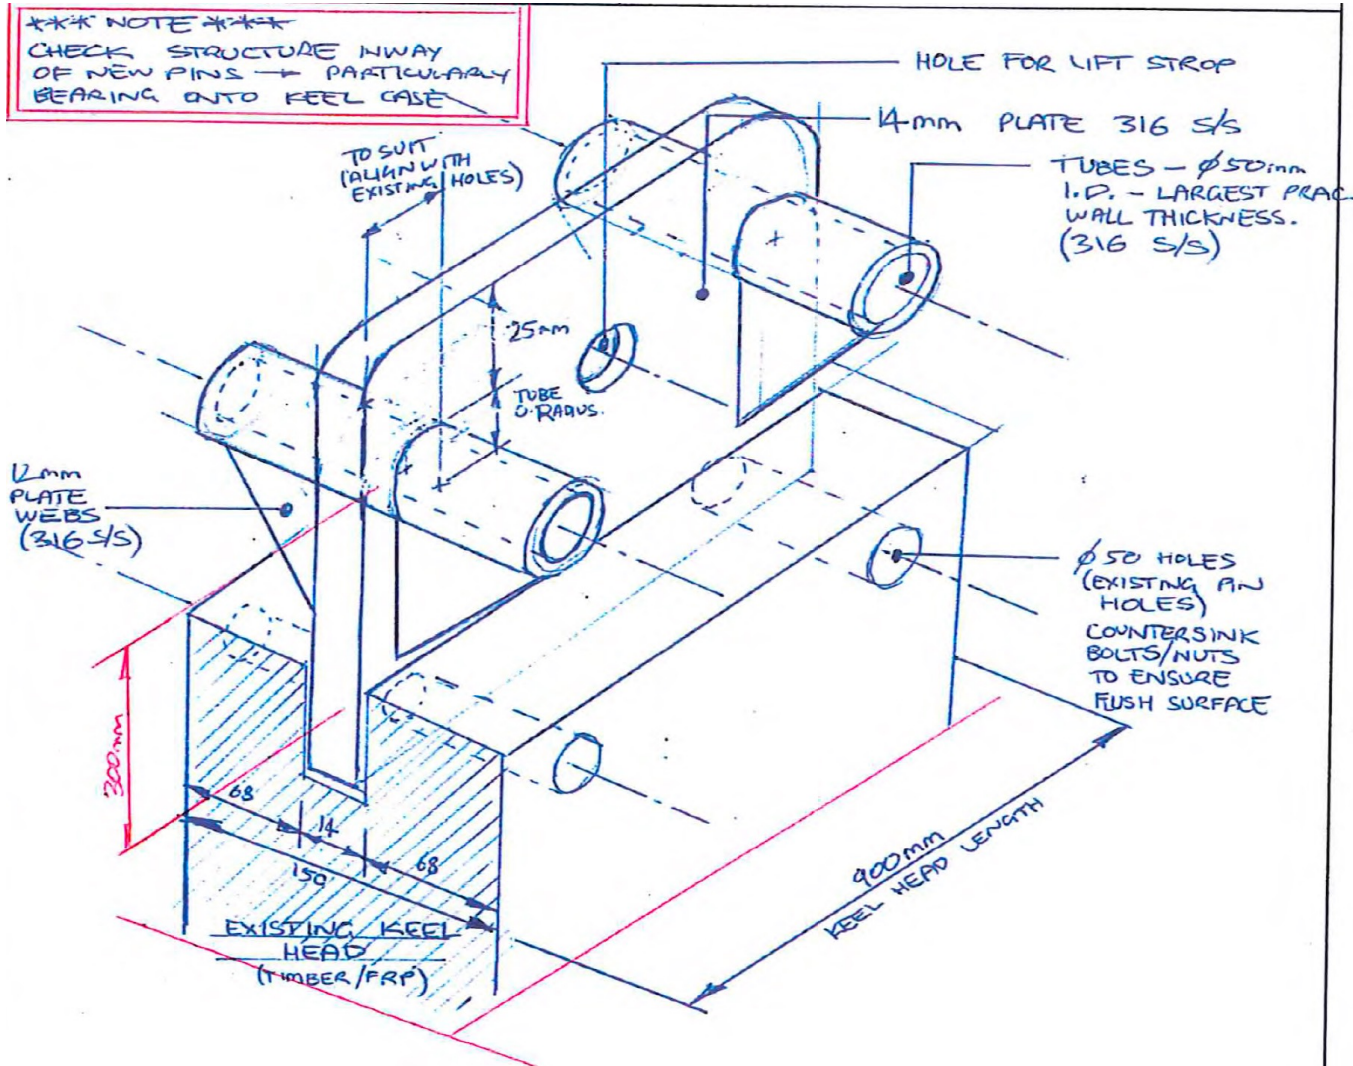 *** NOTE ***
CHECK STRUCTURE INWAY
OF NEW PINS → PARTICULARLY
BEARING ONTO KEEL CASE
HOLE FOR LIFT STROP
14mm PLATE 316 S/S
TUBES - Ø50mm
I.D. - LARGEST PRAC.
WALL THICKNESS.
(316 S/S)
TO SUIT
(ALIGN WITH
EXISTING HOLES)
25mm
TUBE
O. RADIUS.
12mm
PLATE
WEBS
(316 S/S)
Ø50 HOLES
(EXISTING PIN
HOLES)
COUNTERSINK
BOLTS/NUTS
TO ENSURE
FLUSH SURFACE
300mm
68
14
68
150
900mm
KEEL HEAD LENGTH
EXISTING KEEL
HEAD
(TIMBER/FRP)